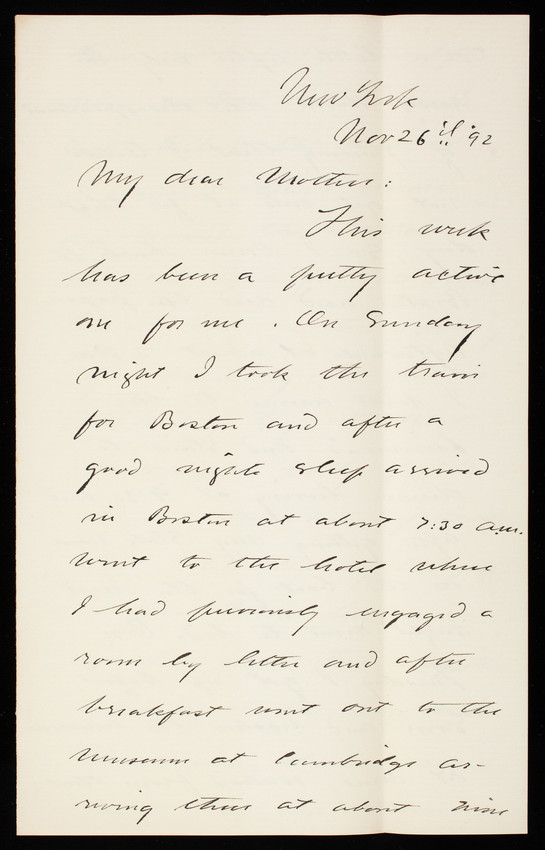 New York
Nov 26th '92
My dear Mother:
This week
has been a pretty active
one for me. On Sunday
night I took the train
for Boston and after a
good nights sleep arrived
in Boston at about 7:30 a.m.
went to the hotel where
I had previously engaged a
room by letter and after
breakfast went out to the
Museum at Cambridge ar-
riving there at about nine